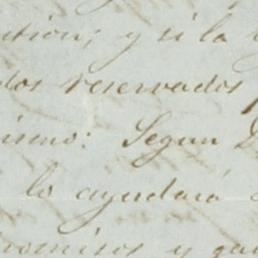 y si la
dos reservados
ismo: Segun
lo ayudará
promisos y que